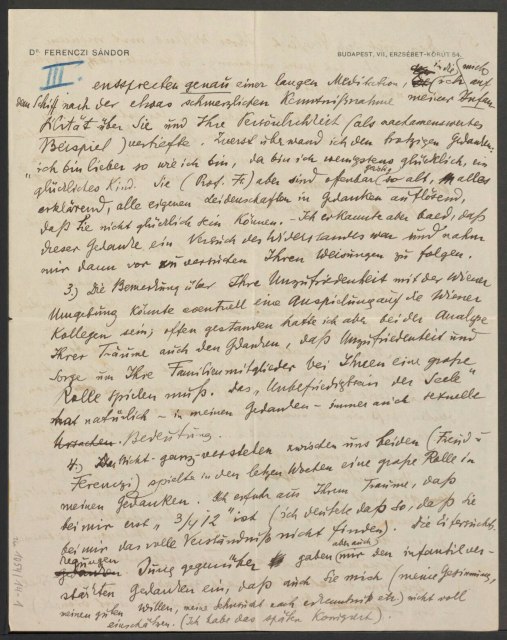 Dr. FERENCZI SÁNDOR
BUDAPEST, VII., ERZSÉBET-KÖRUT 54.
III.
entsprechen genau einer langen Meditation, in die mich
ich auf
dem Schiff nach der etwas schmerzlichen Kenntnißnahme meiner Infan-
tilität über Sie und Ihre Persönlichkeit (als nachahmenswertes
Beispiel) vertiefte. Zuerst überwand ich den trotzigen Gedanken:
"ich bin lieber so wie ich bin, da bin ich wenigstens glücklich, ein
glückliches Kind. Sie (Prof. Fr) aber sind offenbar so alt, alles
geistig
erklärend, alle eigenen Leidenschaften in Gedanken auflösend,
daß Sie nicht glücklich sein können. – Ich erkannte aber bald, daß
dieser Gedanke ein Versuch des Widerstandes war und nahm
mir dann vor zu versuchen Ihren Weisungen zu folgen.
3.) Die Bemerkung über Ihre Unzufriedenheit mit der Wiener
Umgebung könnte eventuell eine Anspielung auf die Wiener
Kollegen sein; offen gestanden hatte ich aber bei der Analyse
Ihrer Träume auch den Gedanken, daß Unzufriedenheit und
Sorge um Ihre Familienmitglieder bei Ihnen eine große
Rolle spielen muß. Das "Unbefriedigtsein der Seele"
hat natürlich – in meinen Gedanken – immer auch sexuelle
Ursachen. Bedeutung.
4.) Das Nicht-ganz-verstehen zwischen uns beiden (Freud u
Ferenczi) spielte in den letzten Wochen eine große Rolle in
meinen Gedanken. Ich erfuhr aus Ihrem Traume, daß
bei mir erst "3/4 12" ist (ich deutete daß so, daß Sie
bei mir das volle Verständniß nicht finden). Die Eifersuchts-
regungen Jung gegenüber gaben mir den infantil ver-
aber auch
stärkten Gedanken ein, daß auch Sie mich (meine Gesinnung,
meinen guten Willen, meine Sehnsucht nach Erkenntniß etc) nicht voll
einschätzen. (Ich habe das später korrigirt).